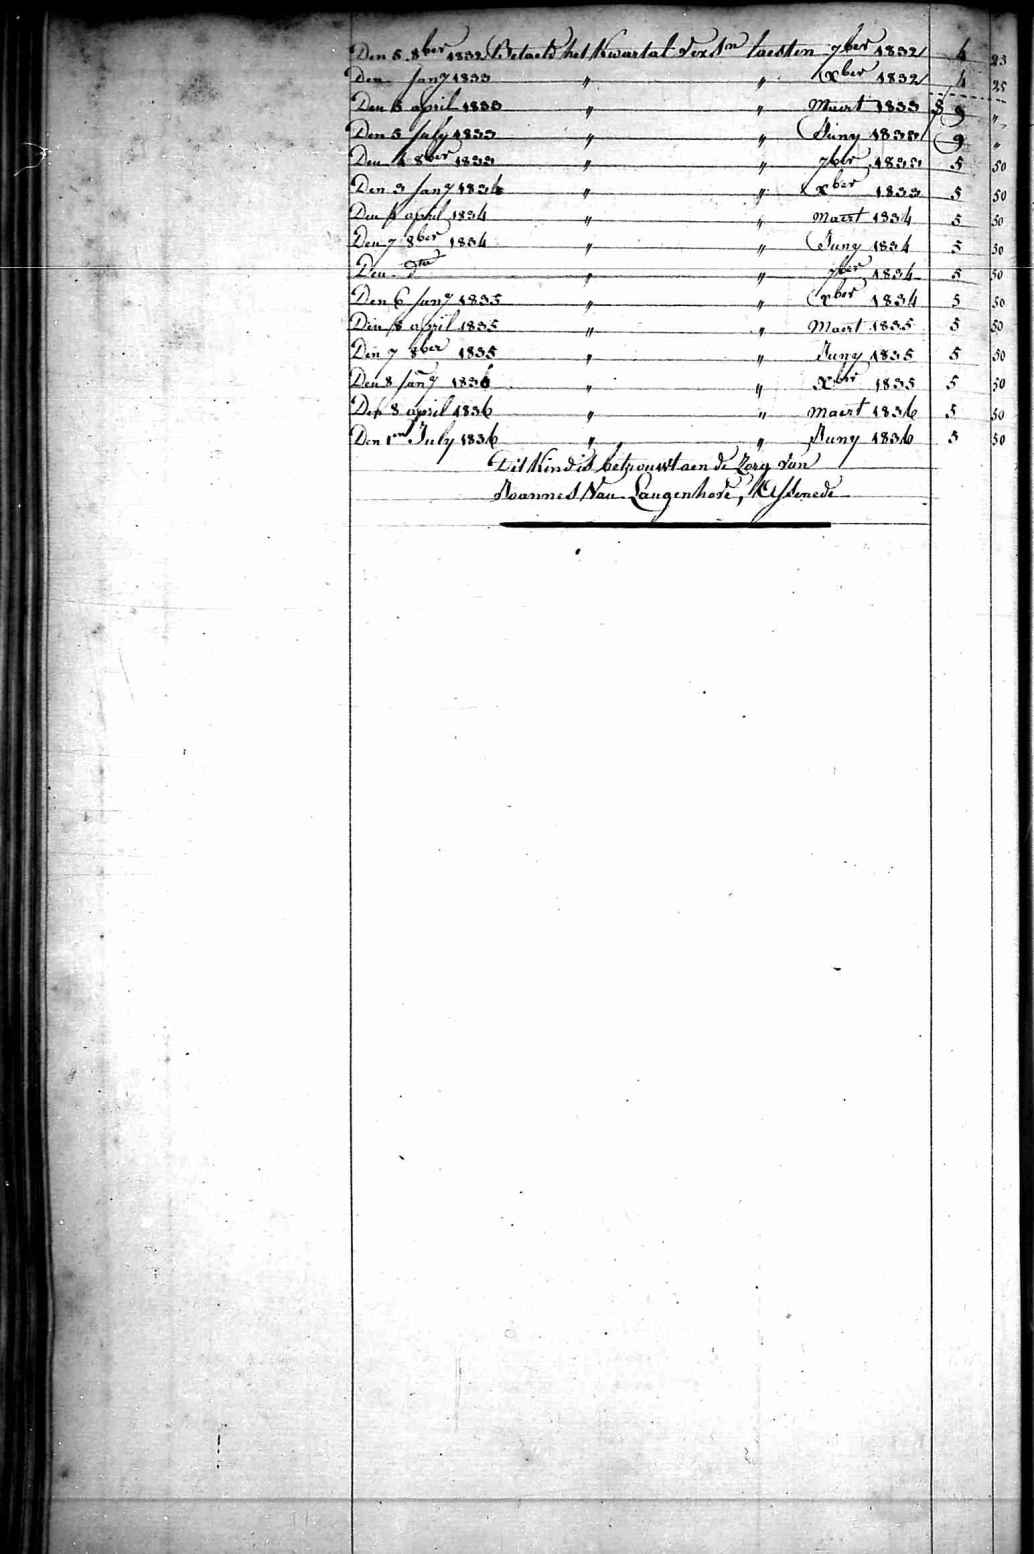 Den 5 8ber 1832 Betaeld het Kwartal verstn laesten 7ber 1832 4 25
Den Jany 1833 " " xber 1832 4 25
Den 6 april 1833 " " Maert 1833 8 "
Den 5 July 1833 " " Juny 1833 9 "
Den 4 8ber 1833 " " 7ber 1833 5 50
Den 3 Jany 1834 " " xber 1833 5 50
Den 4 april 1834 " " maert 1834 5 50
Den 7 8ber 1834 " " Juny 1834 5 50
Den dto " " 7ber 1834 5 50
Den 6 Jany 1835 " " xber 1834 5 50
Den 8 april 1835 " " Maert 1835 5 50
Den 7 8ber 1835 " " Juny 1835 5 50
Den 8 Jany 1836 " " xber 1835 5 50
Den 8 april 1836 " " maert 1836 5 50
Den 1en July 1836 " " Juny 1836 5 50
Dit Kind is betrouwt aen de Zorg van
Joannes Van Langenhove, Assenede